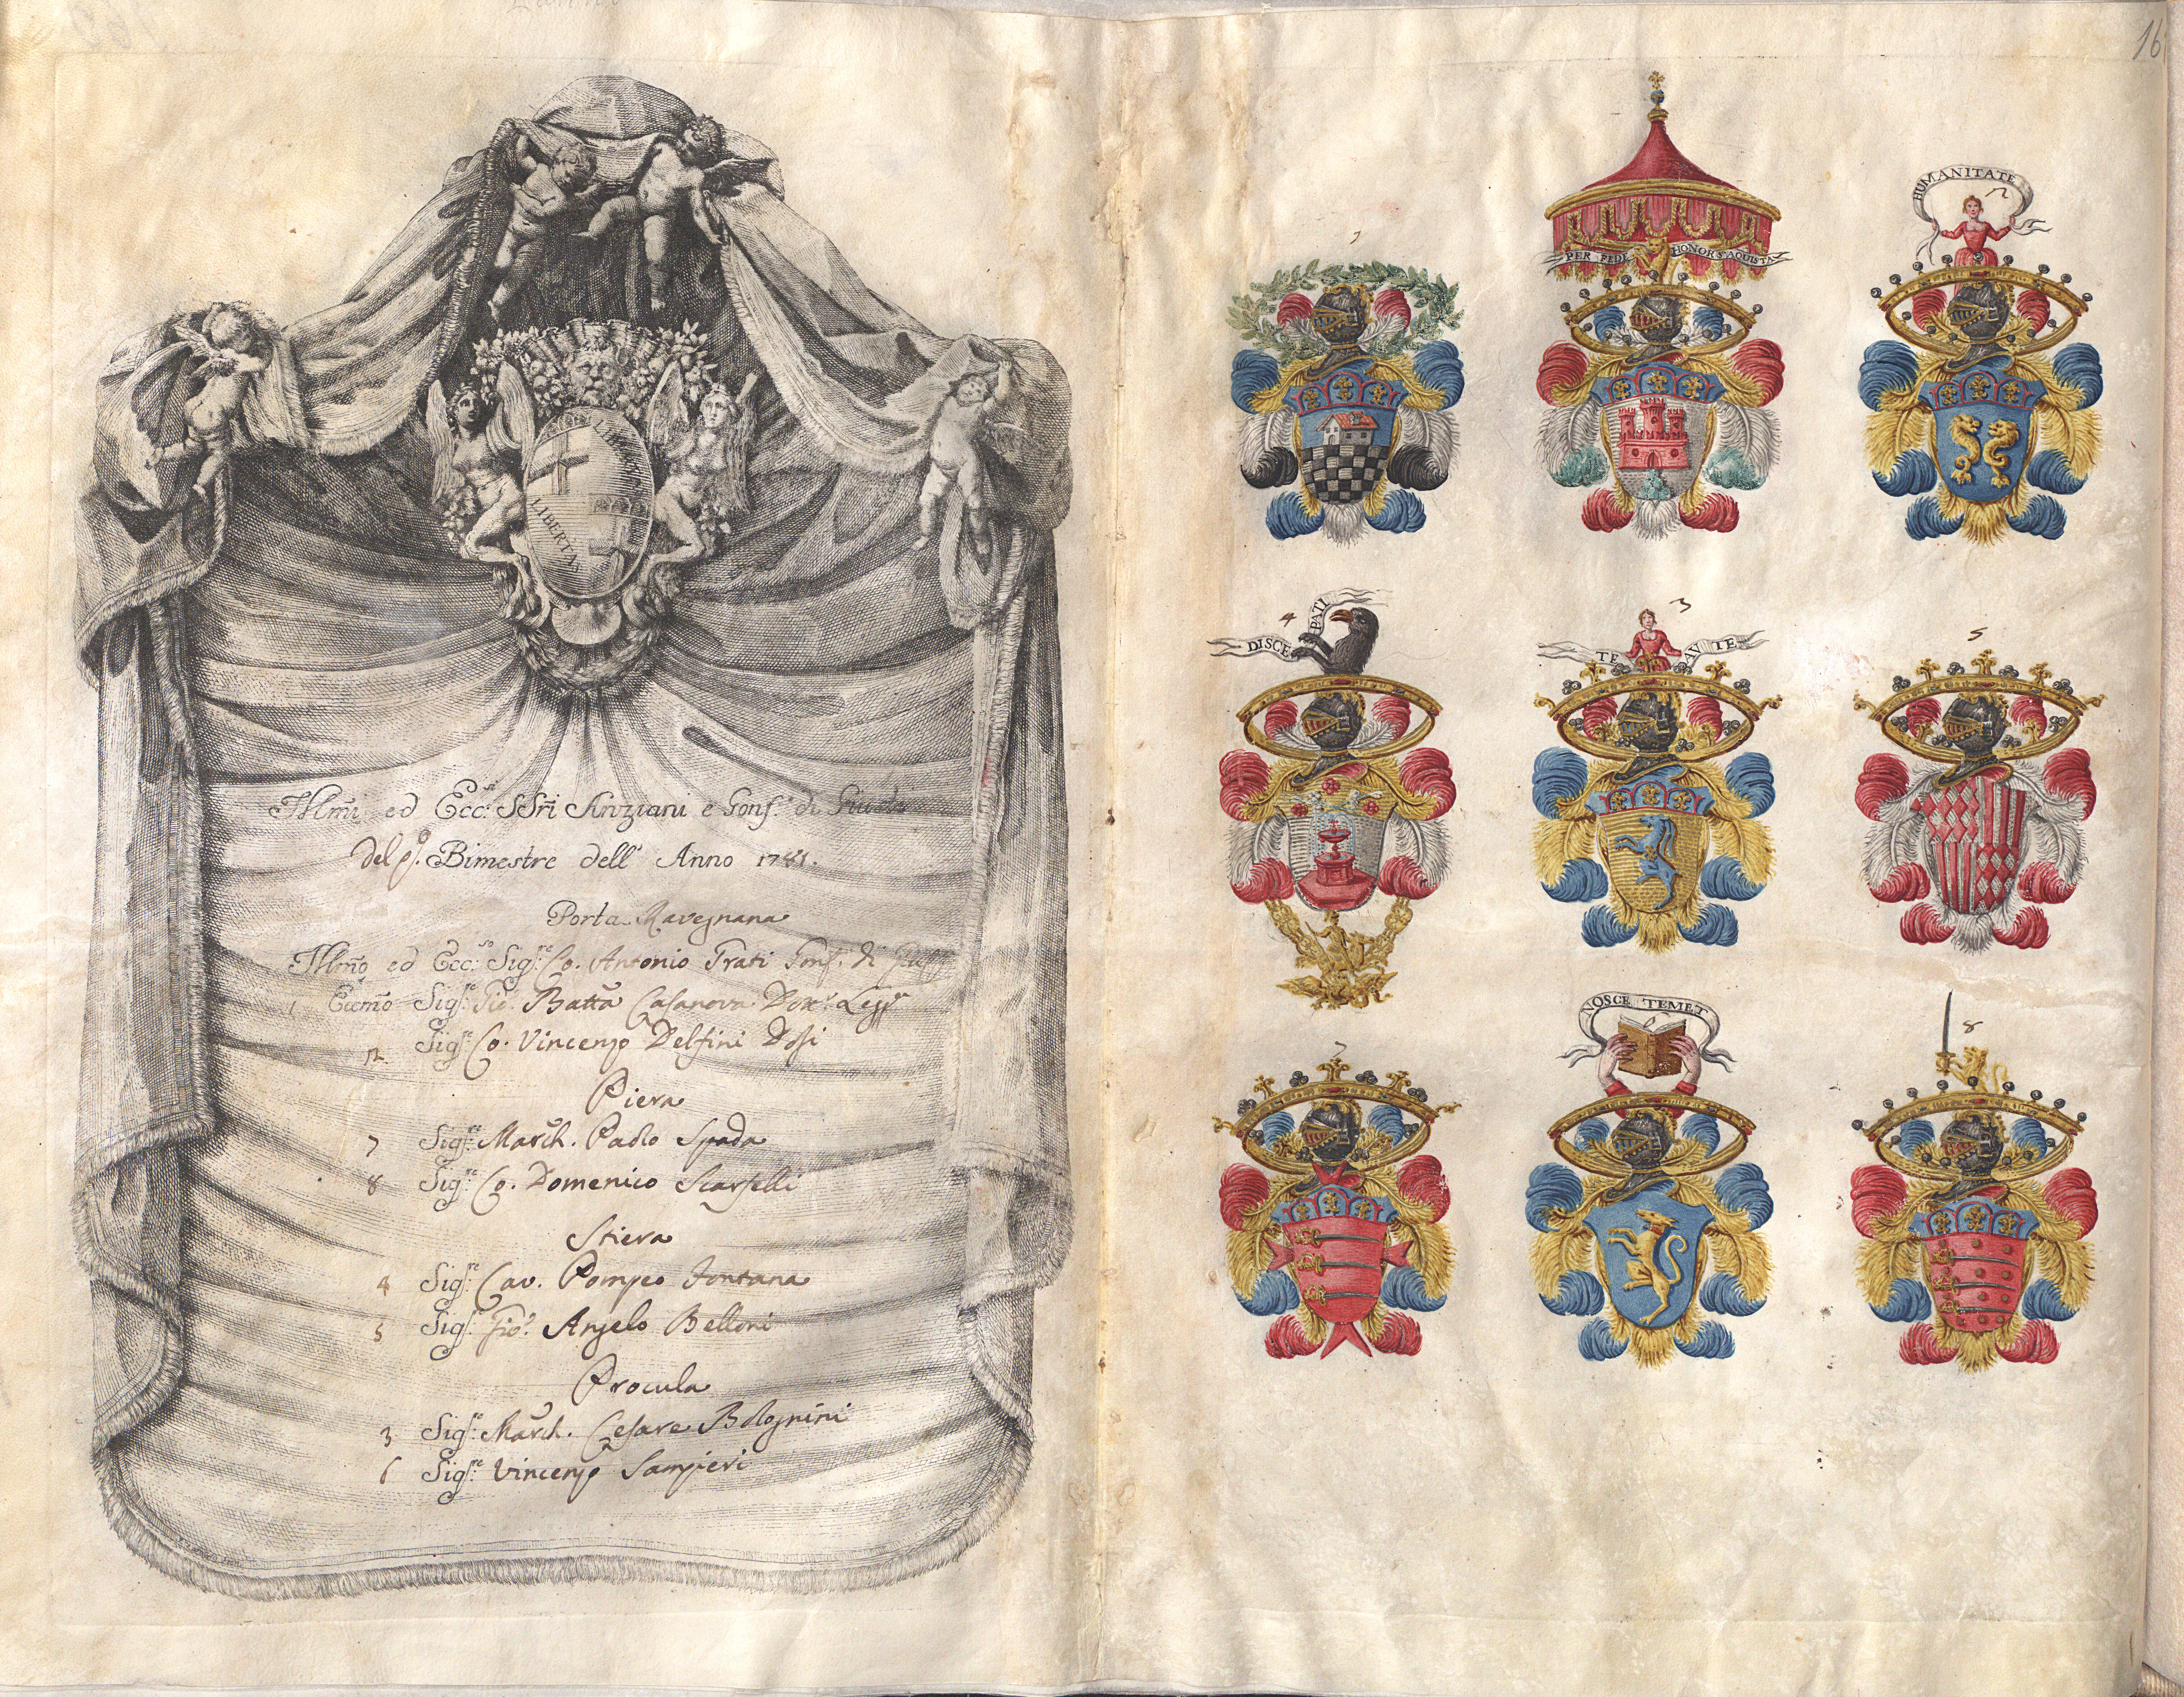 LIBERTAS
LIBERTAS
Illmi ed Ecc.si SSri Anziani e Gonf.e di Giustia
del Bimestre dell' Anno 1781.
Porta Ravegnana
Illmo ed Ecc.so Sig.re Co. Antonio Grati Gonf.e di
1 Eccmo Sig.re Gio. Batta Casanova Dott.e Legg.e
2 Sig.re Co. Vincenzo Delfini Dosi
Piera
7 Sig.re March. Paolo Spada
8 Sig.re Co. Domenico Scarselli
Stiera
4 Sig.re Cav. Pompeo Fontana
5 Sig.re Gio. Angelo Belloni
Procula
3 Sig.re March. Cesare Bolognini
6 Sig.re Vincenzo Sampieri
16
1
PER FEDE HONOR S'AQUISTA
HUMANITATE
2
4
DISCE PATI
3
TE AV TE
5
7
NOSCE TEMET
8